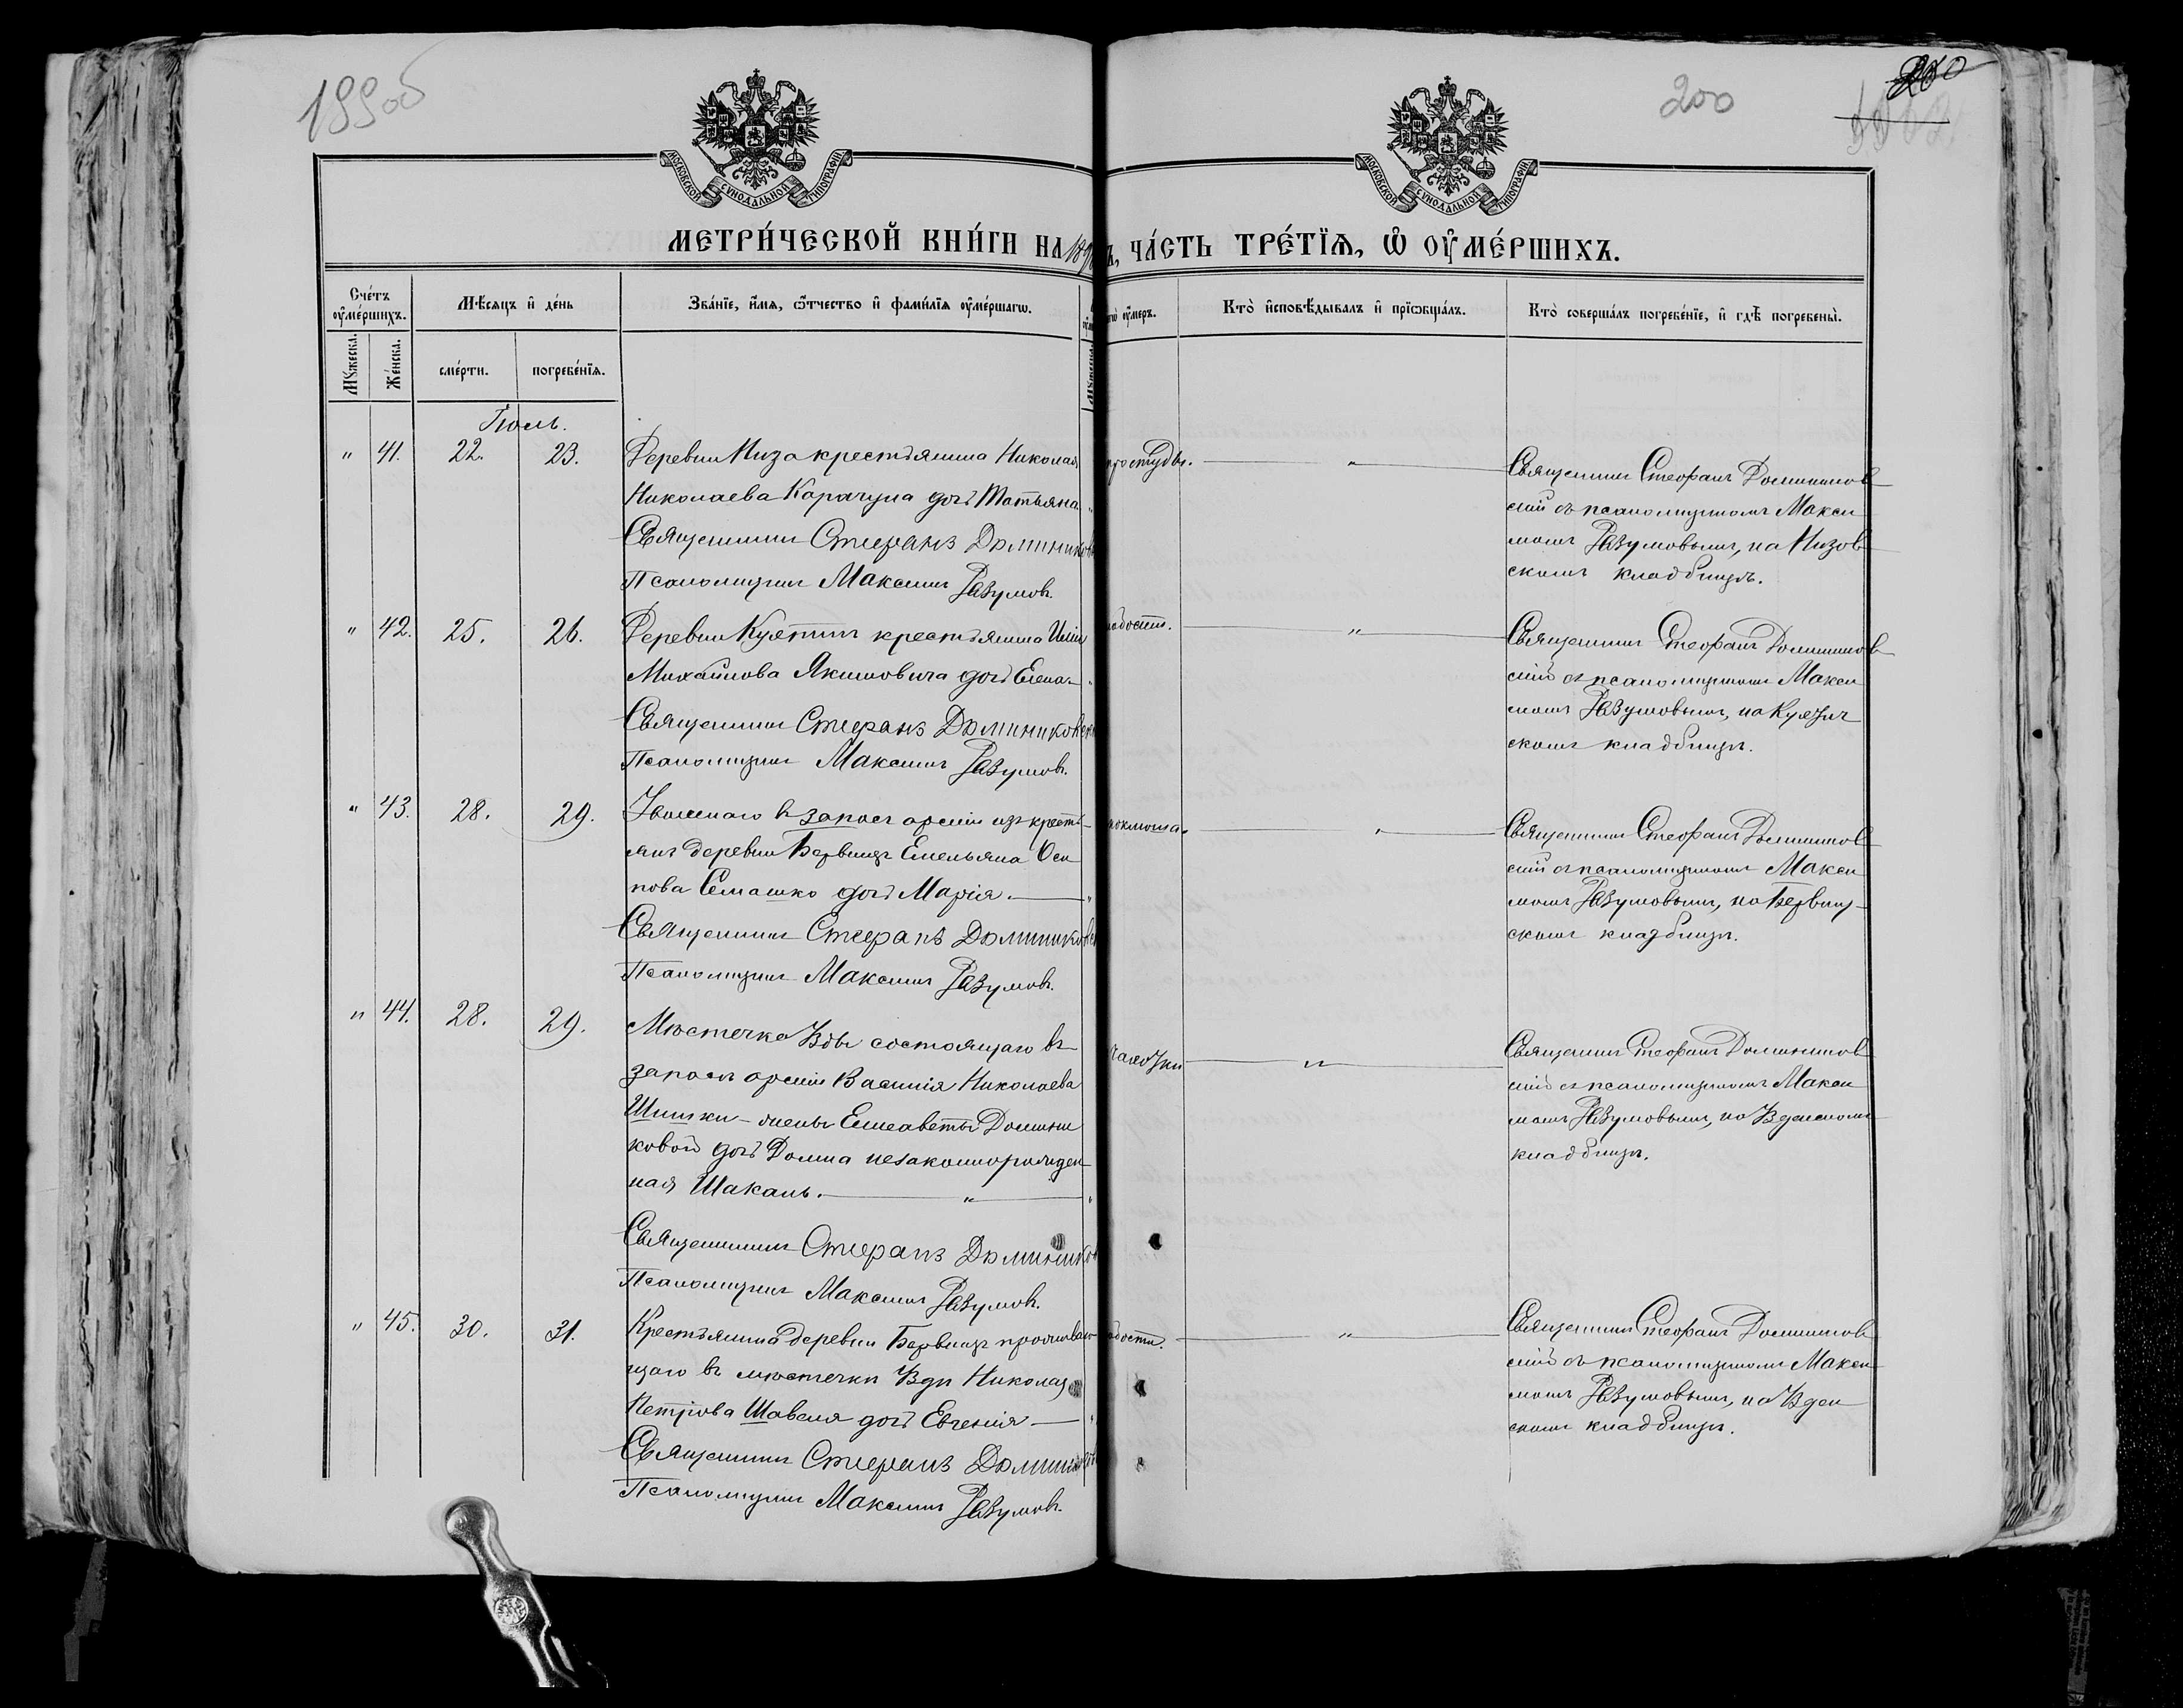 199об
200
МОСКОВСКОЙ СѴНОДАЛЬНОЙ ТИПОГРАФІИ.
МОСКОВСКОЙ СѴНОДАЛЬНОЙ ТИПОГРАФІИ.
МЕТРИ́ЧЕСКОЙ КНИ́ГИ НА 18
ЧА́СТЬ ТРЕ́ТЇѦ, Ѡ ОУМЕ́РШИХЪ.
Сче́тъ оуме́ршихъ.
Мѣ́сяцъ и де́нь
Зва́нїе, и́мя, ѻ́тчество и фами́лїя оуме́ршагѡ.
оу́меръ.
Кто̀ исповѣ́дывалъ и прїѻбща́лъ.
Кто̀ соверша́лъ погребе́нїе, и гдѣ̀ погребены̀.
Му́жеска.
Же́нска.
сме́рти.
погребе́нїя.
Іюль.
" 41. 22. 23. Деревни Низа крестьянина Николая
Николаева Карачуна дочь Татьяна
Священникъ Стефанъ Доминиковс
Псаломщикъ Максимъ Разумовъ.
простуды. "
Священникъ Стефанъ Домиников
скій съ псаломщикомъ Макси
момъ Разумовымъ, на Низов
скомъ кладбищѣ.
" 42. 25. 26. Деревни крестьянина Иліи
Михайлова Якимовича дочь Елена
Священникъ Стефанъ Доминиковскій
Псаломщикъ Максимъ Разумовъ.
"
Священникъ Стефанъ Домиников
скій съ псаломщикомъ Макси
момъ Разумовымъ, на
скомъ кладбищѣ.
" 43. 28. 29. Уволеннаго въ запасъ арміи изъ кресть
янъ деревни Емельяна Оси
пова Семашко дочь Марія.
Священникъ Стефанъ Доминиковс
Псаломщикъ Максимъ Разумовъ.
"
Священникъ Стефанъ Домиников
скій съ псаломщикомъ Макси
момъ Разумовымъ, на
скомъ кладбищѣ.
" 44. 28. 29. Мѣстечка Узды состоящаго въ
запасѣ арміи Василія Николаева
Шишки – жены Елисаветы Домини
ковой дочь Домна незаконнорожден
ная Шакаль. "
Священникъ Стефанъ Домиников
Псаломщикъ Максимъ Разумовъ.
чахотки "
Священникъ Стефанъ Домиников
скій съ псаломщикомъ Макси
момъ Разумовымъ, на Узденскомъ
кладбищѣ.
" 45. 30. 31. Крестьянина деревни проживаю
щаго въ мѣстечкѣ Узды Николая
Петрова Шавеля дочь Евгенія
Священникъ Стефанъ Доминиковс
Псаломщикъ Максимъ Разумовъ.
"
Священникъ Стефанъ Домиников
скій съ псаломщикомъ Макси
момъ Разумовымъ, на Узден
скомъ кладбищѣ.